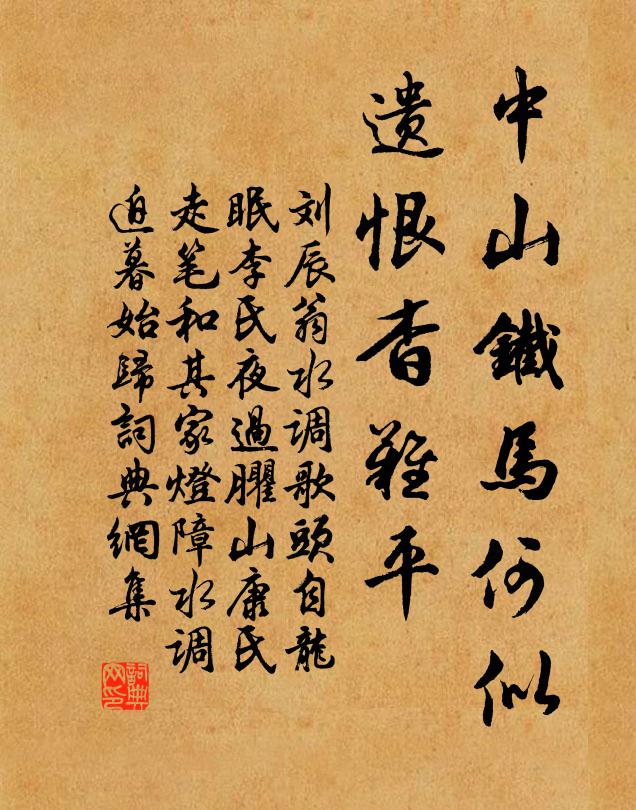 中山鐵馬何似
遗恨杳難平
刘辰翁水调歌頭自龍
眠李氏夜過臞山康氏
走笔和其家燈障水调
迫暮始歸詞典網集
詞典
网印